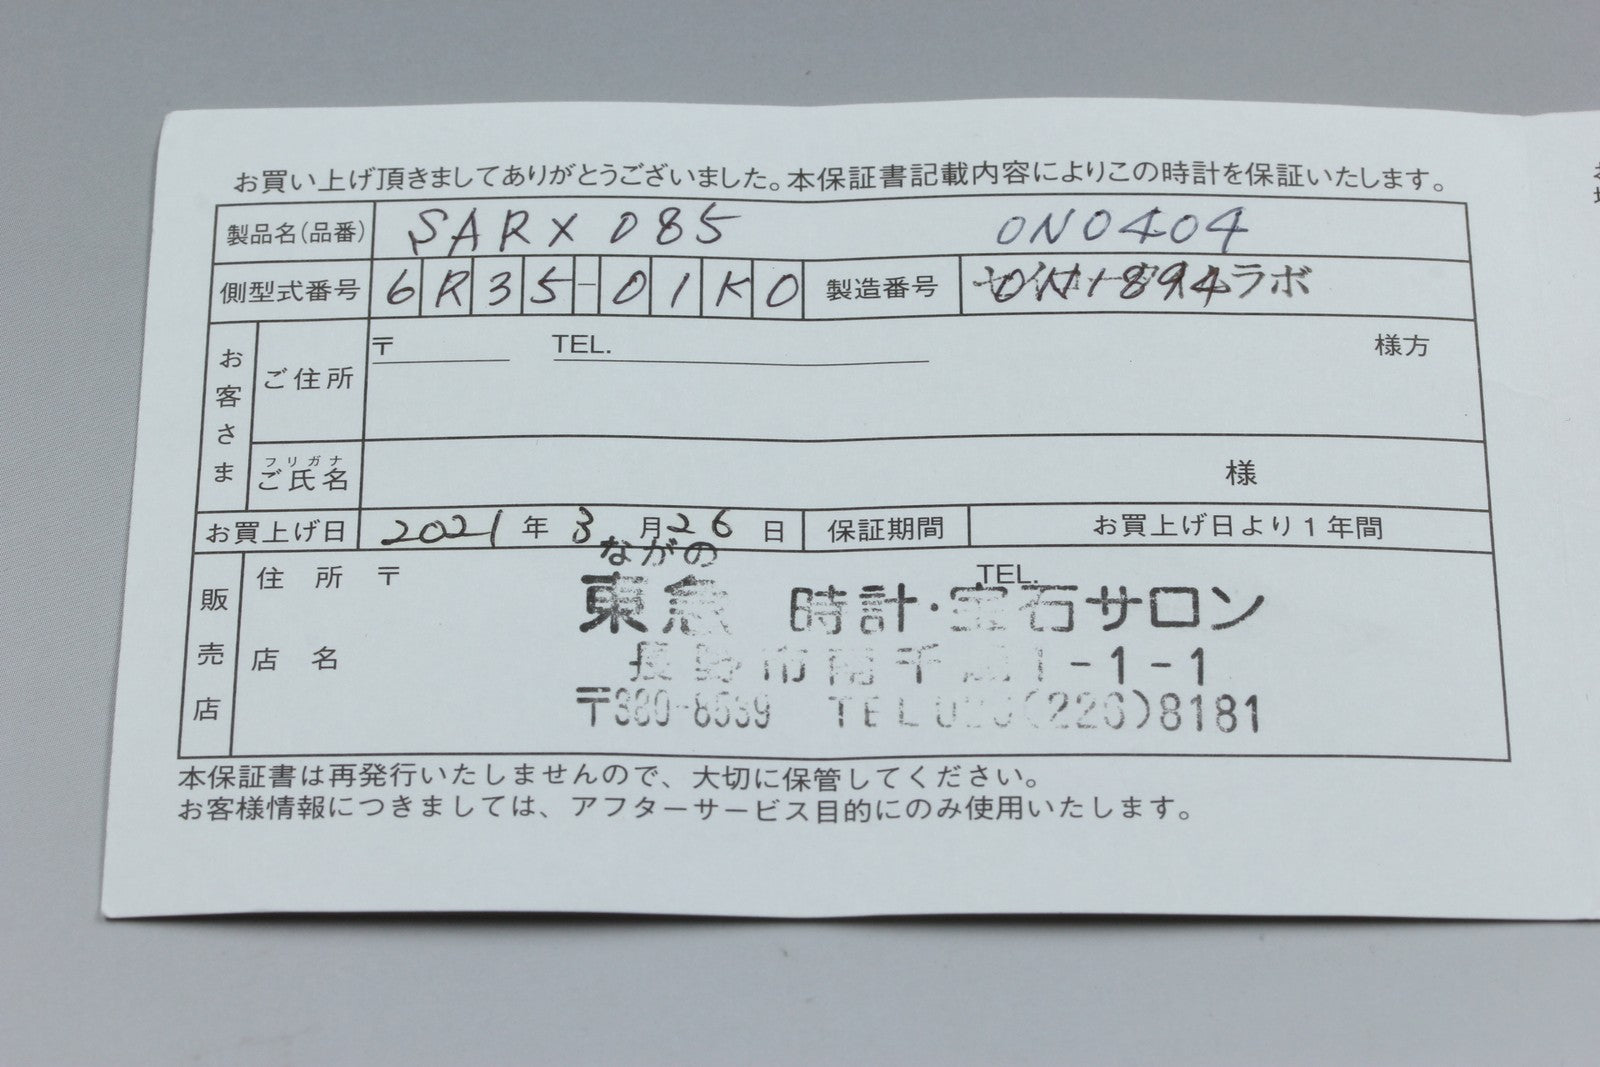 お買い上げ頂きましてありがとうございました。本保証書記載内容によりこの時計を保証いたします。
製品名(品番) SARX085 0N0404
側型式番号 6R35-01K0 製造番号 ラボ
お客さま
ご住所 〒 TEL. 様方
フリガナ
ご氏名 様
お買上げ日 2021年3月26日 保証期間 お買上げ日より1年間
販売店
住所 〒 TEL.
店名
ながの
東急 時計・宝石サロン
長野市南千歳1-1-1
〒380-8539 TEL 026(226)8181
本保証書は再発行いたしませんので、大切に保管してください。
お客様情報につきましては、アフターサービス目的にのみ使用いたします。